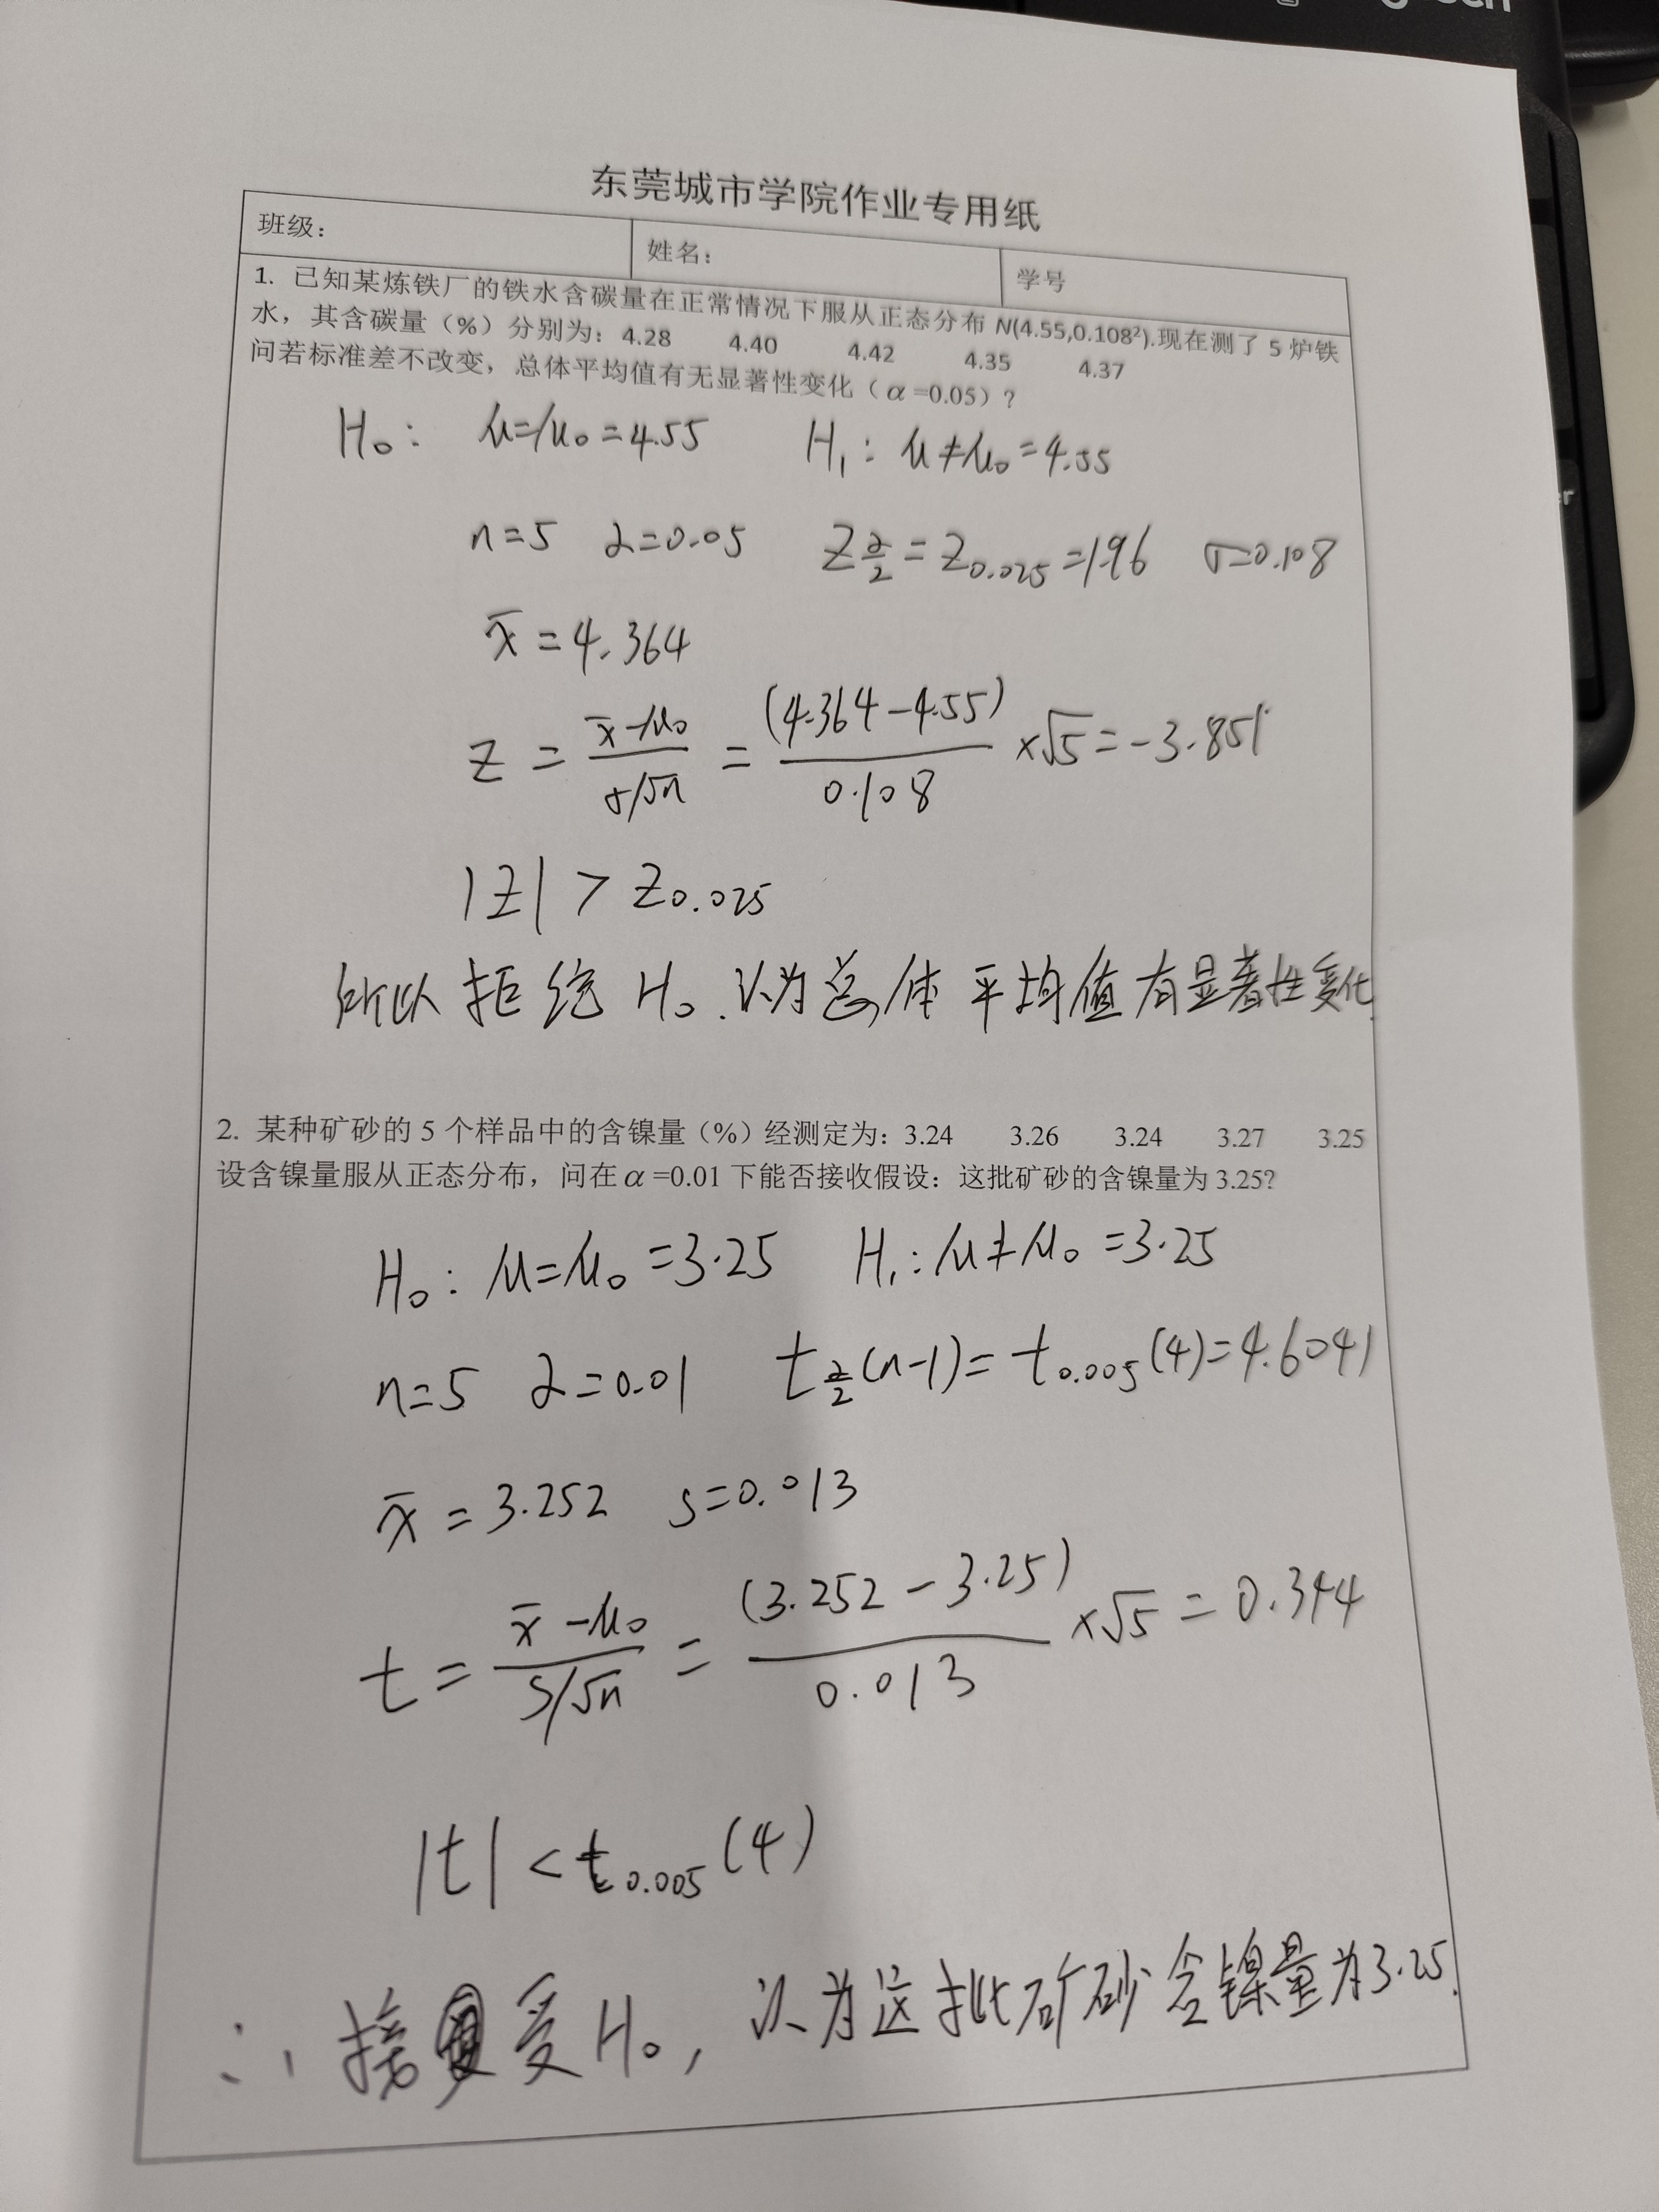 东莞城市学院作业专用纸
班级： 姓名： 学号
1. 已知某炼铁厂的铁水含碳量在正常情况下服从正态分布 N(4.55,0.108²).现在测了 5 炉铁
水，其含碳量（%）分别为：4.28 4.40 4.42 4.35 4.37
问若标准差不改变，总体平均值有无显著性变化（α=0.05）?
H₀: μ=μ₀=4.55 H₁: μ≠μ₀=4.55
n=5 α=0.05 Z_{α/2}=Z_{0.025}=1.96 σ=0.108
x̄=4.364
Z = (x̄-μ₀)/(σ/√n) = (4.364-4.55)/0.108 ×√5=-3.851
|Z| > Z_{0.025}
所以拒绝H₀.认为总体平均值有显著性变化
2. 某种矿砂的 5 个样品中的含镍量（%）经测定为：3.24 3.26 3.24 3.27 3.25
设含镍量服从正态分布，问在α=0.01 下能否接收假设：这批矿砂的含镍量为 3.25?
H₀: μ=μ₀=3.25 H₁: μ≠μ₀=3.25
n=5 α=0.01 t_{α/2}(n-1)=t_{0.005}(4)=4.6041
x̄=3.252 s=0.013
t = (x̄-μ₀)/(S/√n) = (3.252-3.25)/0.013 ×√5=0.344
|t| < t_{0.005}(4)
∴接受H₀，认为这批矿砂含镍量为3.25.